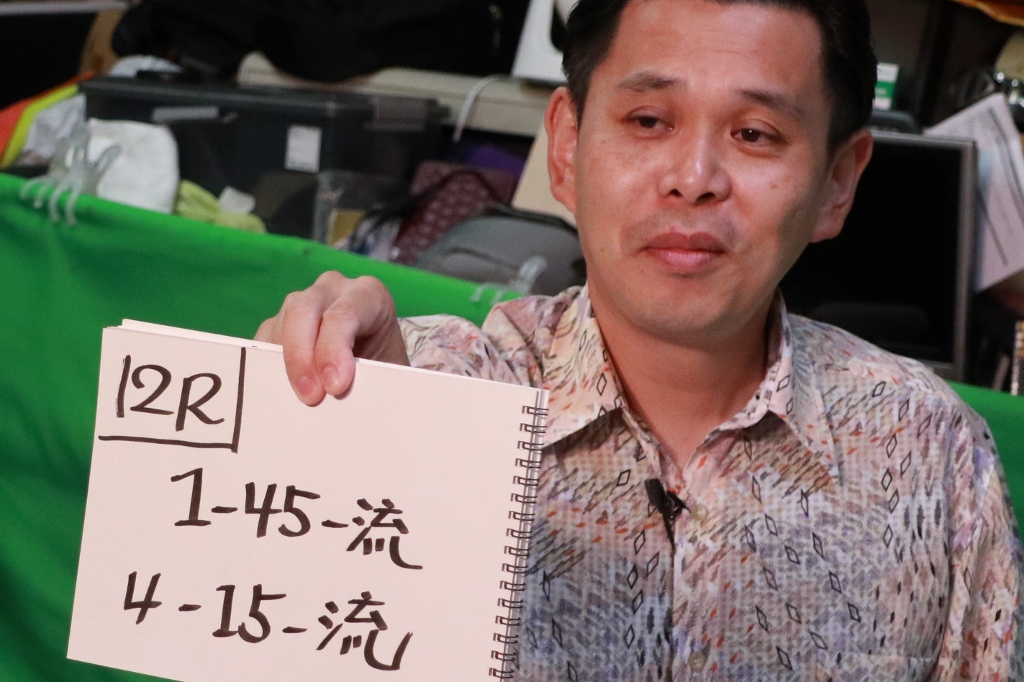 12R
1-45-流
4-15-流